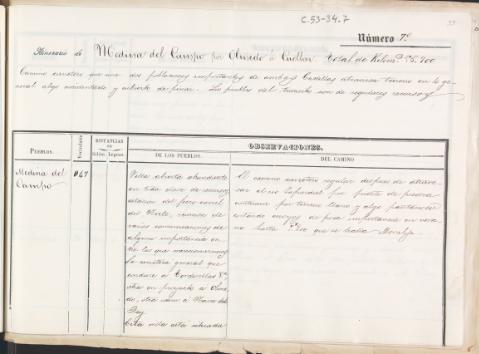 C.53-34.7
Número 7º
Itinerario de Medina del Campo por Olmedo á Cuellar. Total de Kilom.
Camino carretero que une dos poblaciones importantes de ambas Castillas atraviesa terreno en lo ge-
neral algo accidentado y cubierto de pinar. Los pueblos del transito son de regulares recursos
PUEBLOS.
Vecindario
DISTANCIAS EN
Kilóm. Leguas
OBSERVACIONES.
DE LOS PUEBLOS.
DEL CAMINO
Medina del
Campo
Villa abierta abundante
en toda clase de recursos
estacion del ferro-carril
del Norte, cruce de
varias comunicaciones de
alguna importancia en-
tre las que mencionaremos
la carretera general que
conduce á Tordesillas
otra en proyecto á Olme-
do, otra idem á
Esta villa está situada
El camino carretero regular despues de atrave-
sar el rio Zapardiel por puente de piedra
continua por terreno llano y algo pantanoso
cortando arroyos de poca importancia en vera-
no hasta que se halla